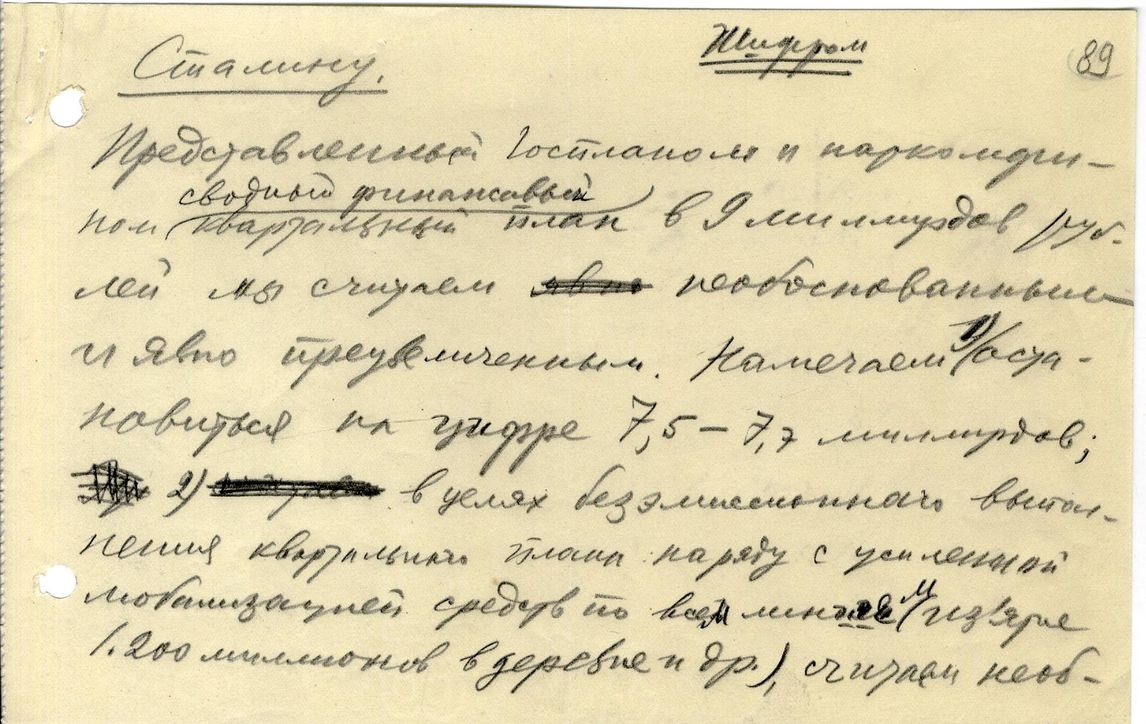 Шифром
89
Сталину.
Представленный Госпланом и наркомфи-
сводный финансовый
ном квартальный план в 9 миллиардов руб-
лей мы считаем явно необоснованным
и явно преувеличенным. Намечаем 1) оста-
новиться на цифре 7,5 – 7,7 миллиардов;
2) в целях безэмиссионного выпол-
нения квартального плана наряду с усиленной
мобилизацией средств по всем линиям (из'ятие
1.200 миллионов в деревне и др.), считаем необ-